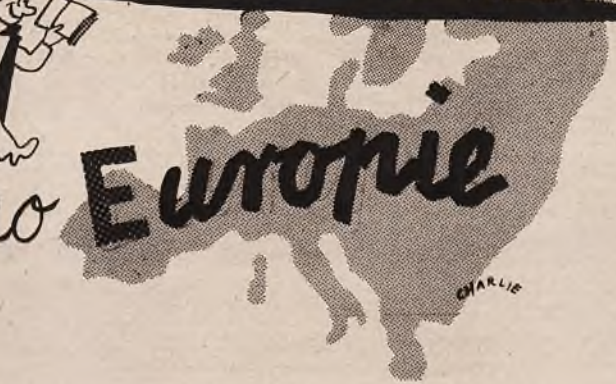 o Europie
CHARLIE